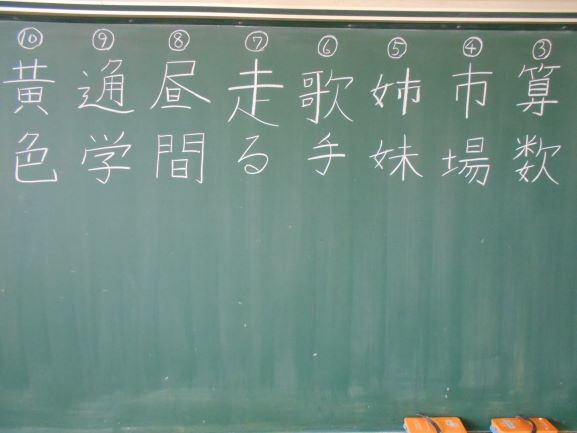 ③算数
④市場
⑤姉妹
⑥歌手
⑦走る
⑧昼間
⑨通学
⑩黄色